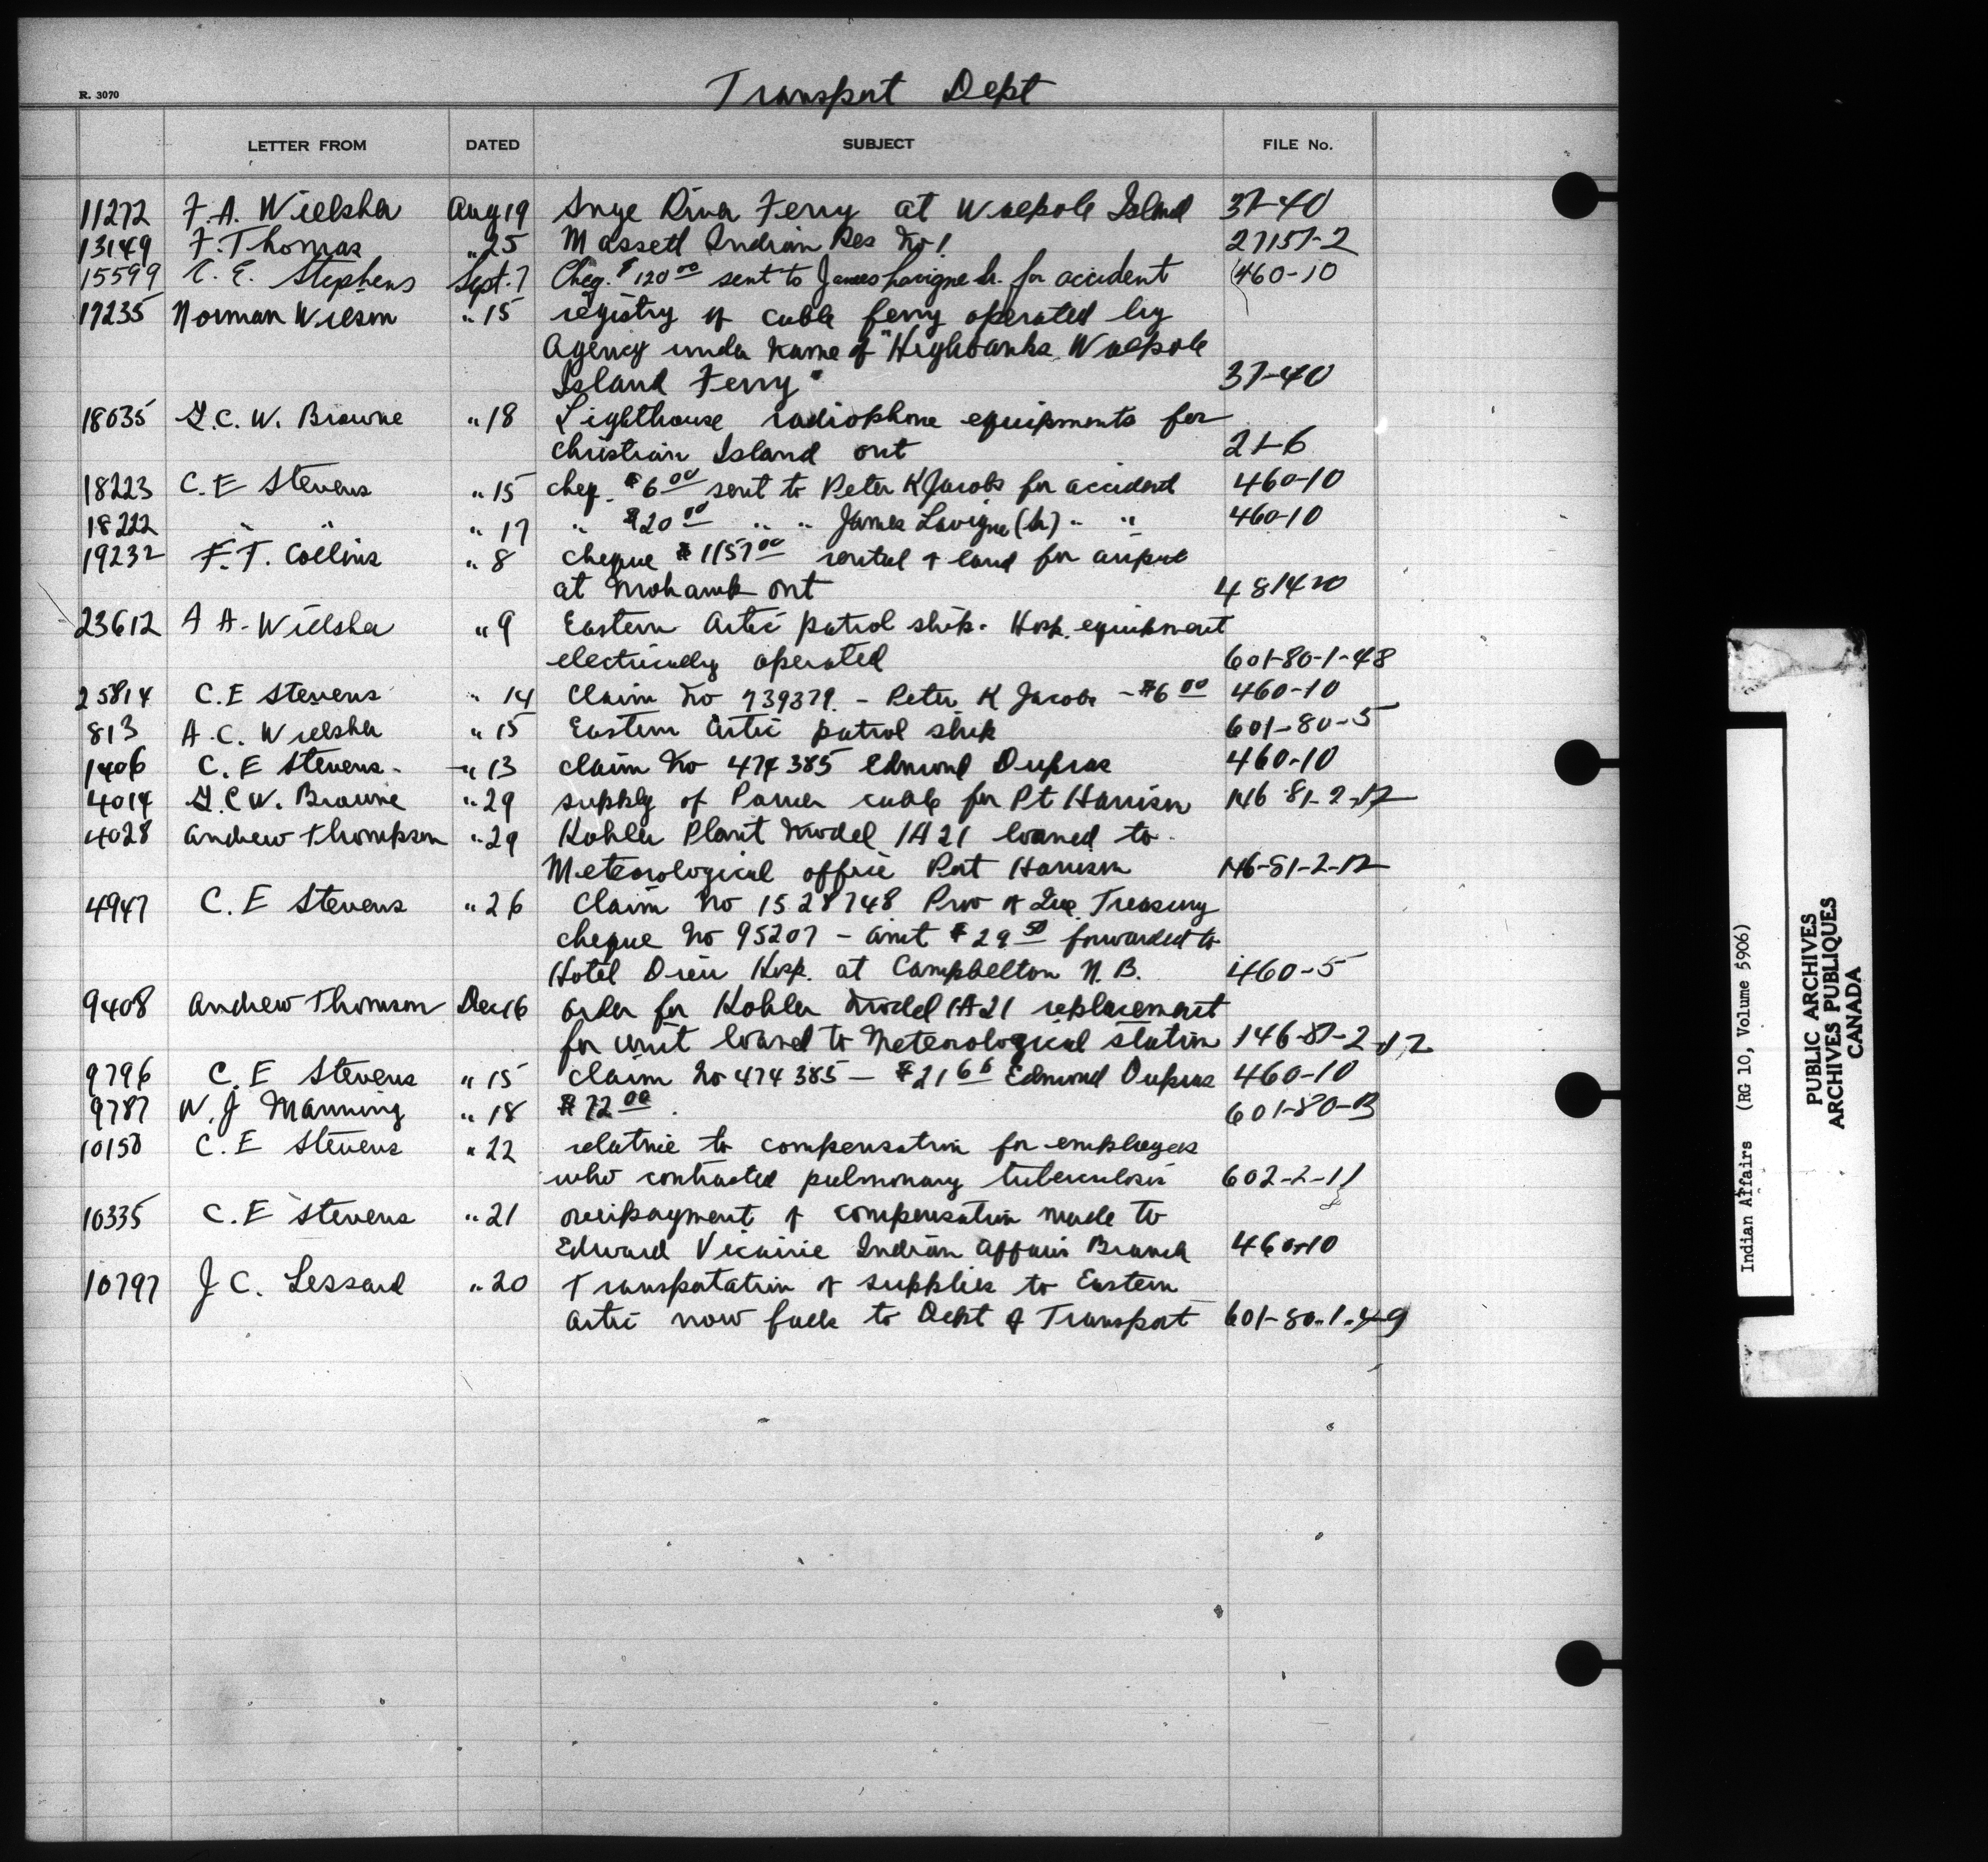 Transport Dept
R. 3070
LETTER FROM DATED SUBJECT FILE No.
11272 F. A. Wielsha Aug 19 Snye River Ferry at Walpole Island 37-40
13149 F. Thomas " 25 Massett Indian Res No 1 27157-2
15599 C. E. Stephens Sept. 7 Cheq. $120 00 sent to James Lavigne Sr. for accident 460-10
17235 Norman Wilson " 15 registry of cable ferry operated by
Agency under name of "Highbanks Walpole
Island Ferry" 37-40
18035 G. C. W. Browne " 18 Lighthouse radiophone equipments for
Christian Island Ont 21-6
18223 C. E Stevens " 15 cheq. $6 00 sent to Peter K Jacobs for accident 460-10
18222 " " " 17 " $20 00 " " James Lavigne (Sr) " " 460-10
19232 F. T. Collins " 8 cheque $1157 00 rental of land for airport
at Mohawk Ont
23612 A A. Wielsha " 9 Eastern Artic patrol ship. Hosp. equipment
electrically operated 601-80-1-48
25814 C. E Stevens " 14 Claim No 739379. - Peter K Jacobs - $6 00 460-10
813 A. C. Wielsha " 15 Eastern Artic patrol ship 601-80-5
1406 C. E Stevens. " 13 claim No 474385 Edmond Dupras 460-10
4014 G. C W. Browne " 29 supply of Power cable for Pt Harrison 146-81-2-12
4028 Andrew Thompson " 29 Kohler Plant Model 1A21 loaned to
Meteorological office Port Harrison 146-81-2-12
4947 C. E Stevens " 26 Claim No 1528748 Prov of Que. Treasury
cheque No 95207 - amt $29 50 forwarded to
Hotel Dieu Hosp. at Campbelton N. B. 460-5
9408 Andrew Thomson Dec 16 order for Kohler Model 1A21 replacement
for unit loaned to Meteorological station 146-81-2-12
9796 C. E Stevens " 15 Claim No 474385 - $21 66 Edmond Dupras 460-10
9787 W. J Manning " 18 $72 00. 601-80-13
10150 C. E Stevens " 22 relative to compensation for employees
who contracted pulmonary tuberculosis 602-2-11
10335 C. E Stevens " 21 overpayment of compensation made to
Edward Vicairie Indian Affairs Branch 460-10
10797 J C. Lessard " 20 Transportation of supplies to Eastern
Artic now falls to Dept of Transport 601-80-1-49
Indian Affairs (RG 10, Volume 5906)
PUBLIC ARCHIVES
ARCHIVES PUBLIQUES
CANADA